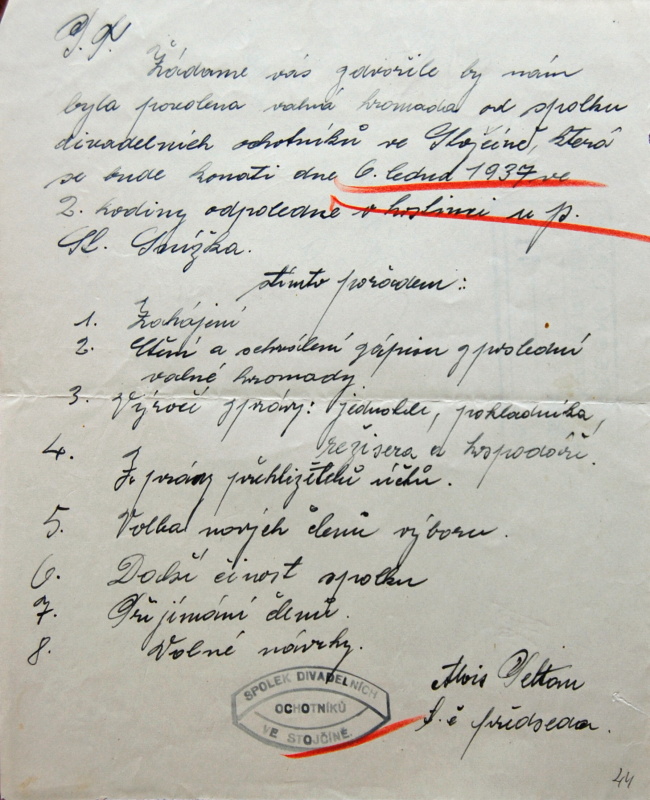 P. T.
Žádáme vás zdvořile by nám
byla povolena valná hromada od spolku
divadelních ochotníků ve Stojčíně, která
se bude konati dne 6. ledna 1937 ve
2. hodiny odpoledne v hostinci u p.
St. Snížka.
stímto pořadem:
1. Zahájení
2. Čtení a schválení zápisu z poslední
valné hromady.
3. Výročí zprávy: jednatele, pokladníka,
režisera a hospodáře.
4. Zprávy přehližitelů účtů.
5. Volba nových členů výboru.
6. Další činost spolku
7. Přijímání členů.
8. Volné návrhy.
Alois
t. č předseda.
SPOLEK DIVADELNÍCH
OCHOTNÍKŮ
VE STOJČÍNĚ.
44